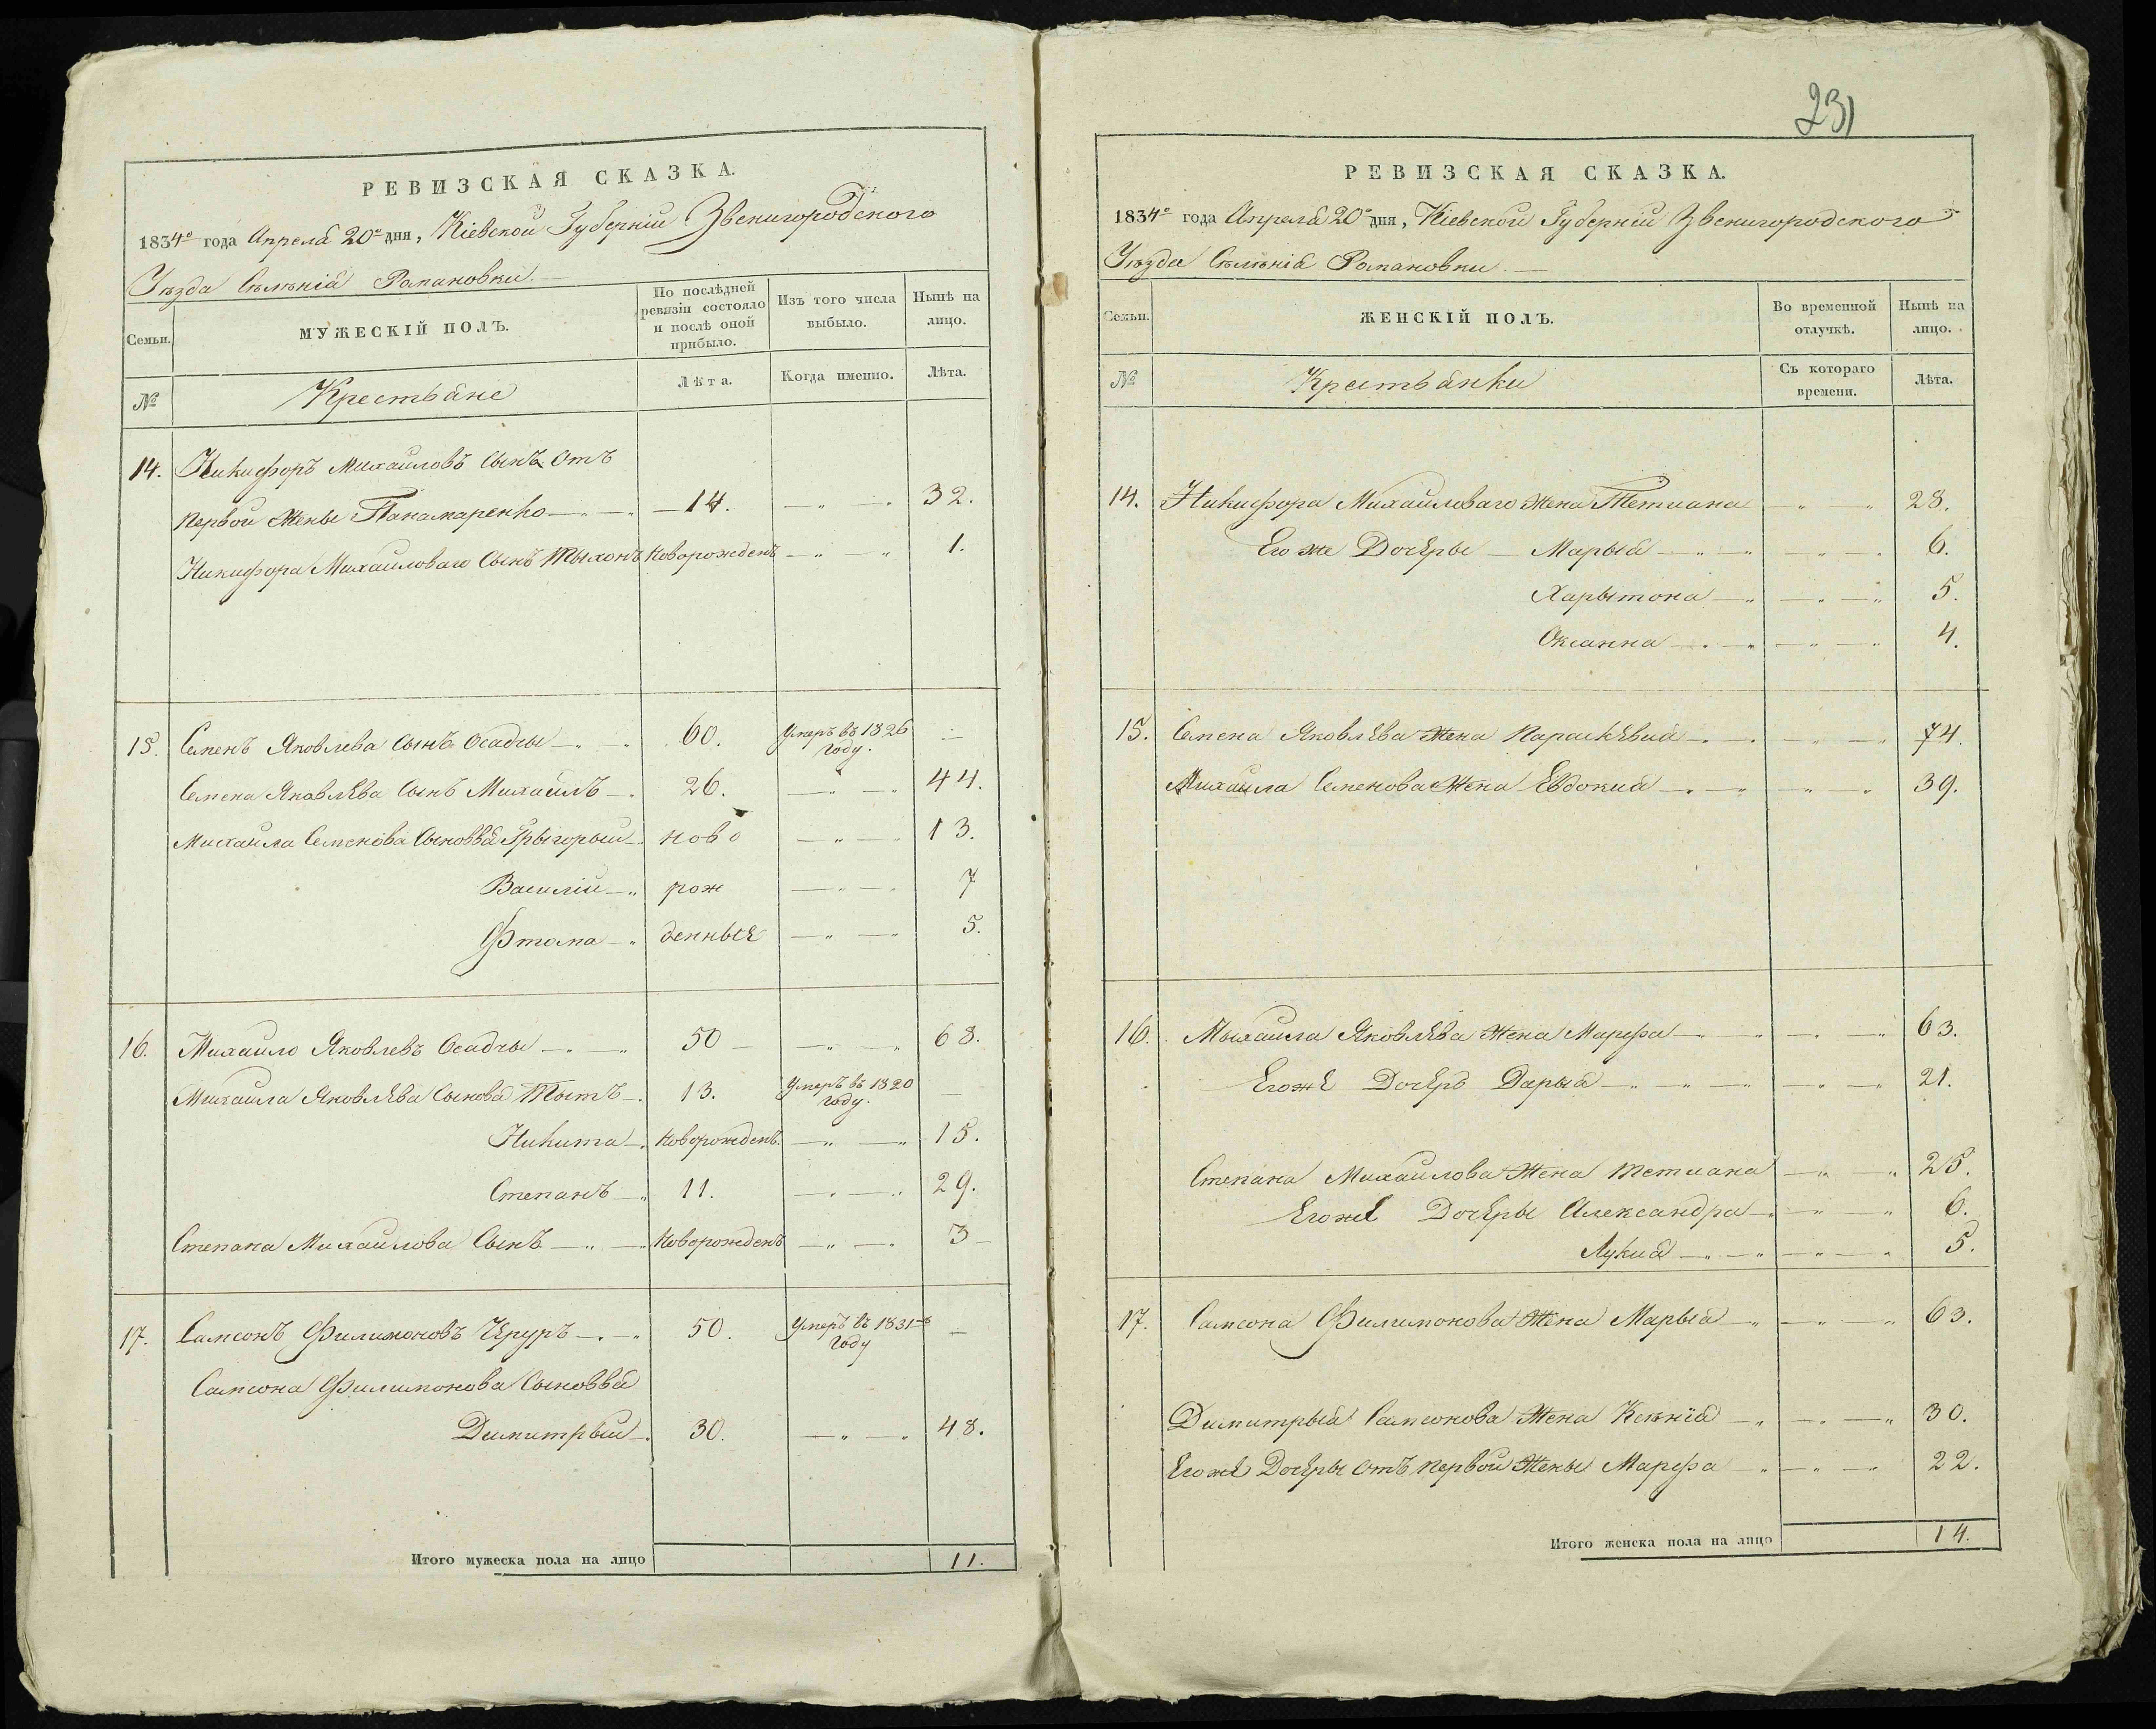 РЕВИЗСКАЯ СКАЗКА.
1834º года Апреля 20º дня, Кіевской Губерніи Звенигородского
Уѣзда Сѣлѣнія Романовки.
Семьи.
МУЖЕСКІЙ ПОЛЪ.
По послѣдней ревизіи состояло и послѣ оной прибыло.
Изъ того числа выбыло.
Нынѣ на лицо.
№
Крестьяне
Лѣта.
Когда именно.
Лѣта.
14. Никифоръ Михайловъ Сынъ Отъ
первой Жены Панамаренко 14. 32.
Никифора Михайловаго Сынъ Тыхонъ Новорожденъ 1.
15. Семенъ Яковлева Сынъ Осадчы 60. Умеръ въ 1826 году.
Семена Яковлѣва Сынъ Михайлъ 26. 44.
Михаила Семенова Сыновья Грыгорый ново 13.
Василій рож 7
Фтома денные 5.
16. Михайло Яковлевъ Осадчы 50 68.
Михаила Яковлева Сынова Тытъ 13. Умеръ въ 1820 году.
Никита Новорожденъ 15.
Степанъ 11. 29.
Степана Михайлова Сынъ Новорожденъ 3
17. Самсонъ Филимоновъ Чруръ 50. Умеръ въ 1831 году
Самсона Филимонова Сыновья
Димитрый 30. 48.
Итого мужеска пола на лицо 11.
231
РЕВИЗСКАЯ СКАЗКА.
1834º года Апреля 20º дня, Кіевской Губерніи Звенигородского
Уѣзда Сѣлѣнія Романовки.
Семьи.
ЖЕНСКІЙ ПОЛЪ.
Во временной отлучкѣ.
Нынѣ на лицо.
№
Крестьянки
Съ котораго времени.
Лѣта.
14. Никифора Михайловаго Жена Тетиана 28.
Его же Дочеры Марыя 6.
Харытона 5.
Оксанна 4.
15. Семена Яковлева Жена Параскевия 74.
Михаила Семенова Жена Евдокия 39.
16. Мыхаила Яковлева Жена Марфа 63.
Егоже Дочерь Дарыя 21.
Степана Михайлова Жена Тетиана 25.
Егоже Дочеры Александра 6.
Лукия 5.
17. Самсона Филимонова Жена Марыя 63.
Димитрыя Самсонова Жена Ксѣнія 30.
Егоже Дочеры отъ первой Жены Марфа 22.
Итого женска пола на лицо 14.